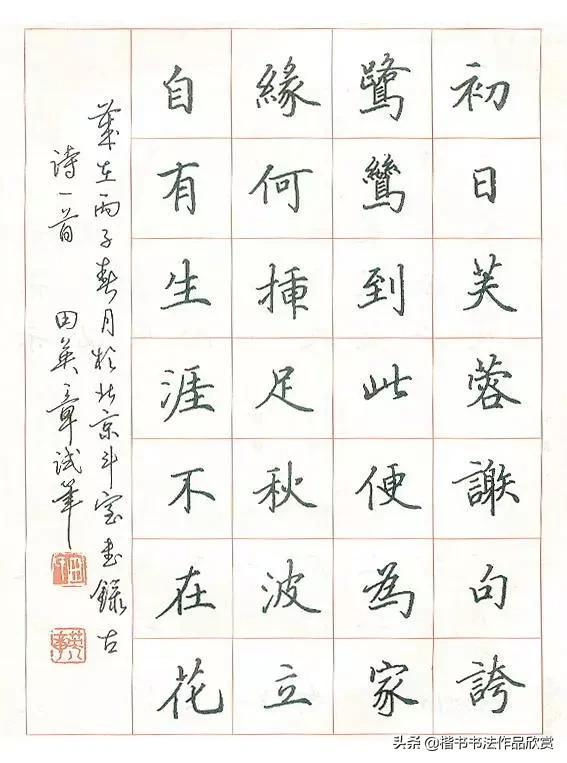 初日芙蓉謝句誇
鷺鷥到此便為家
緣何揷足秋波立
自有生涯不在花
歲在丙子春月於北京斗室書錄古
诗一首 田英章试笔
头条 @楷书书法作品欣赏